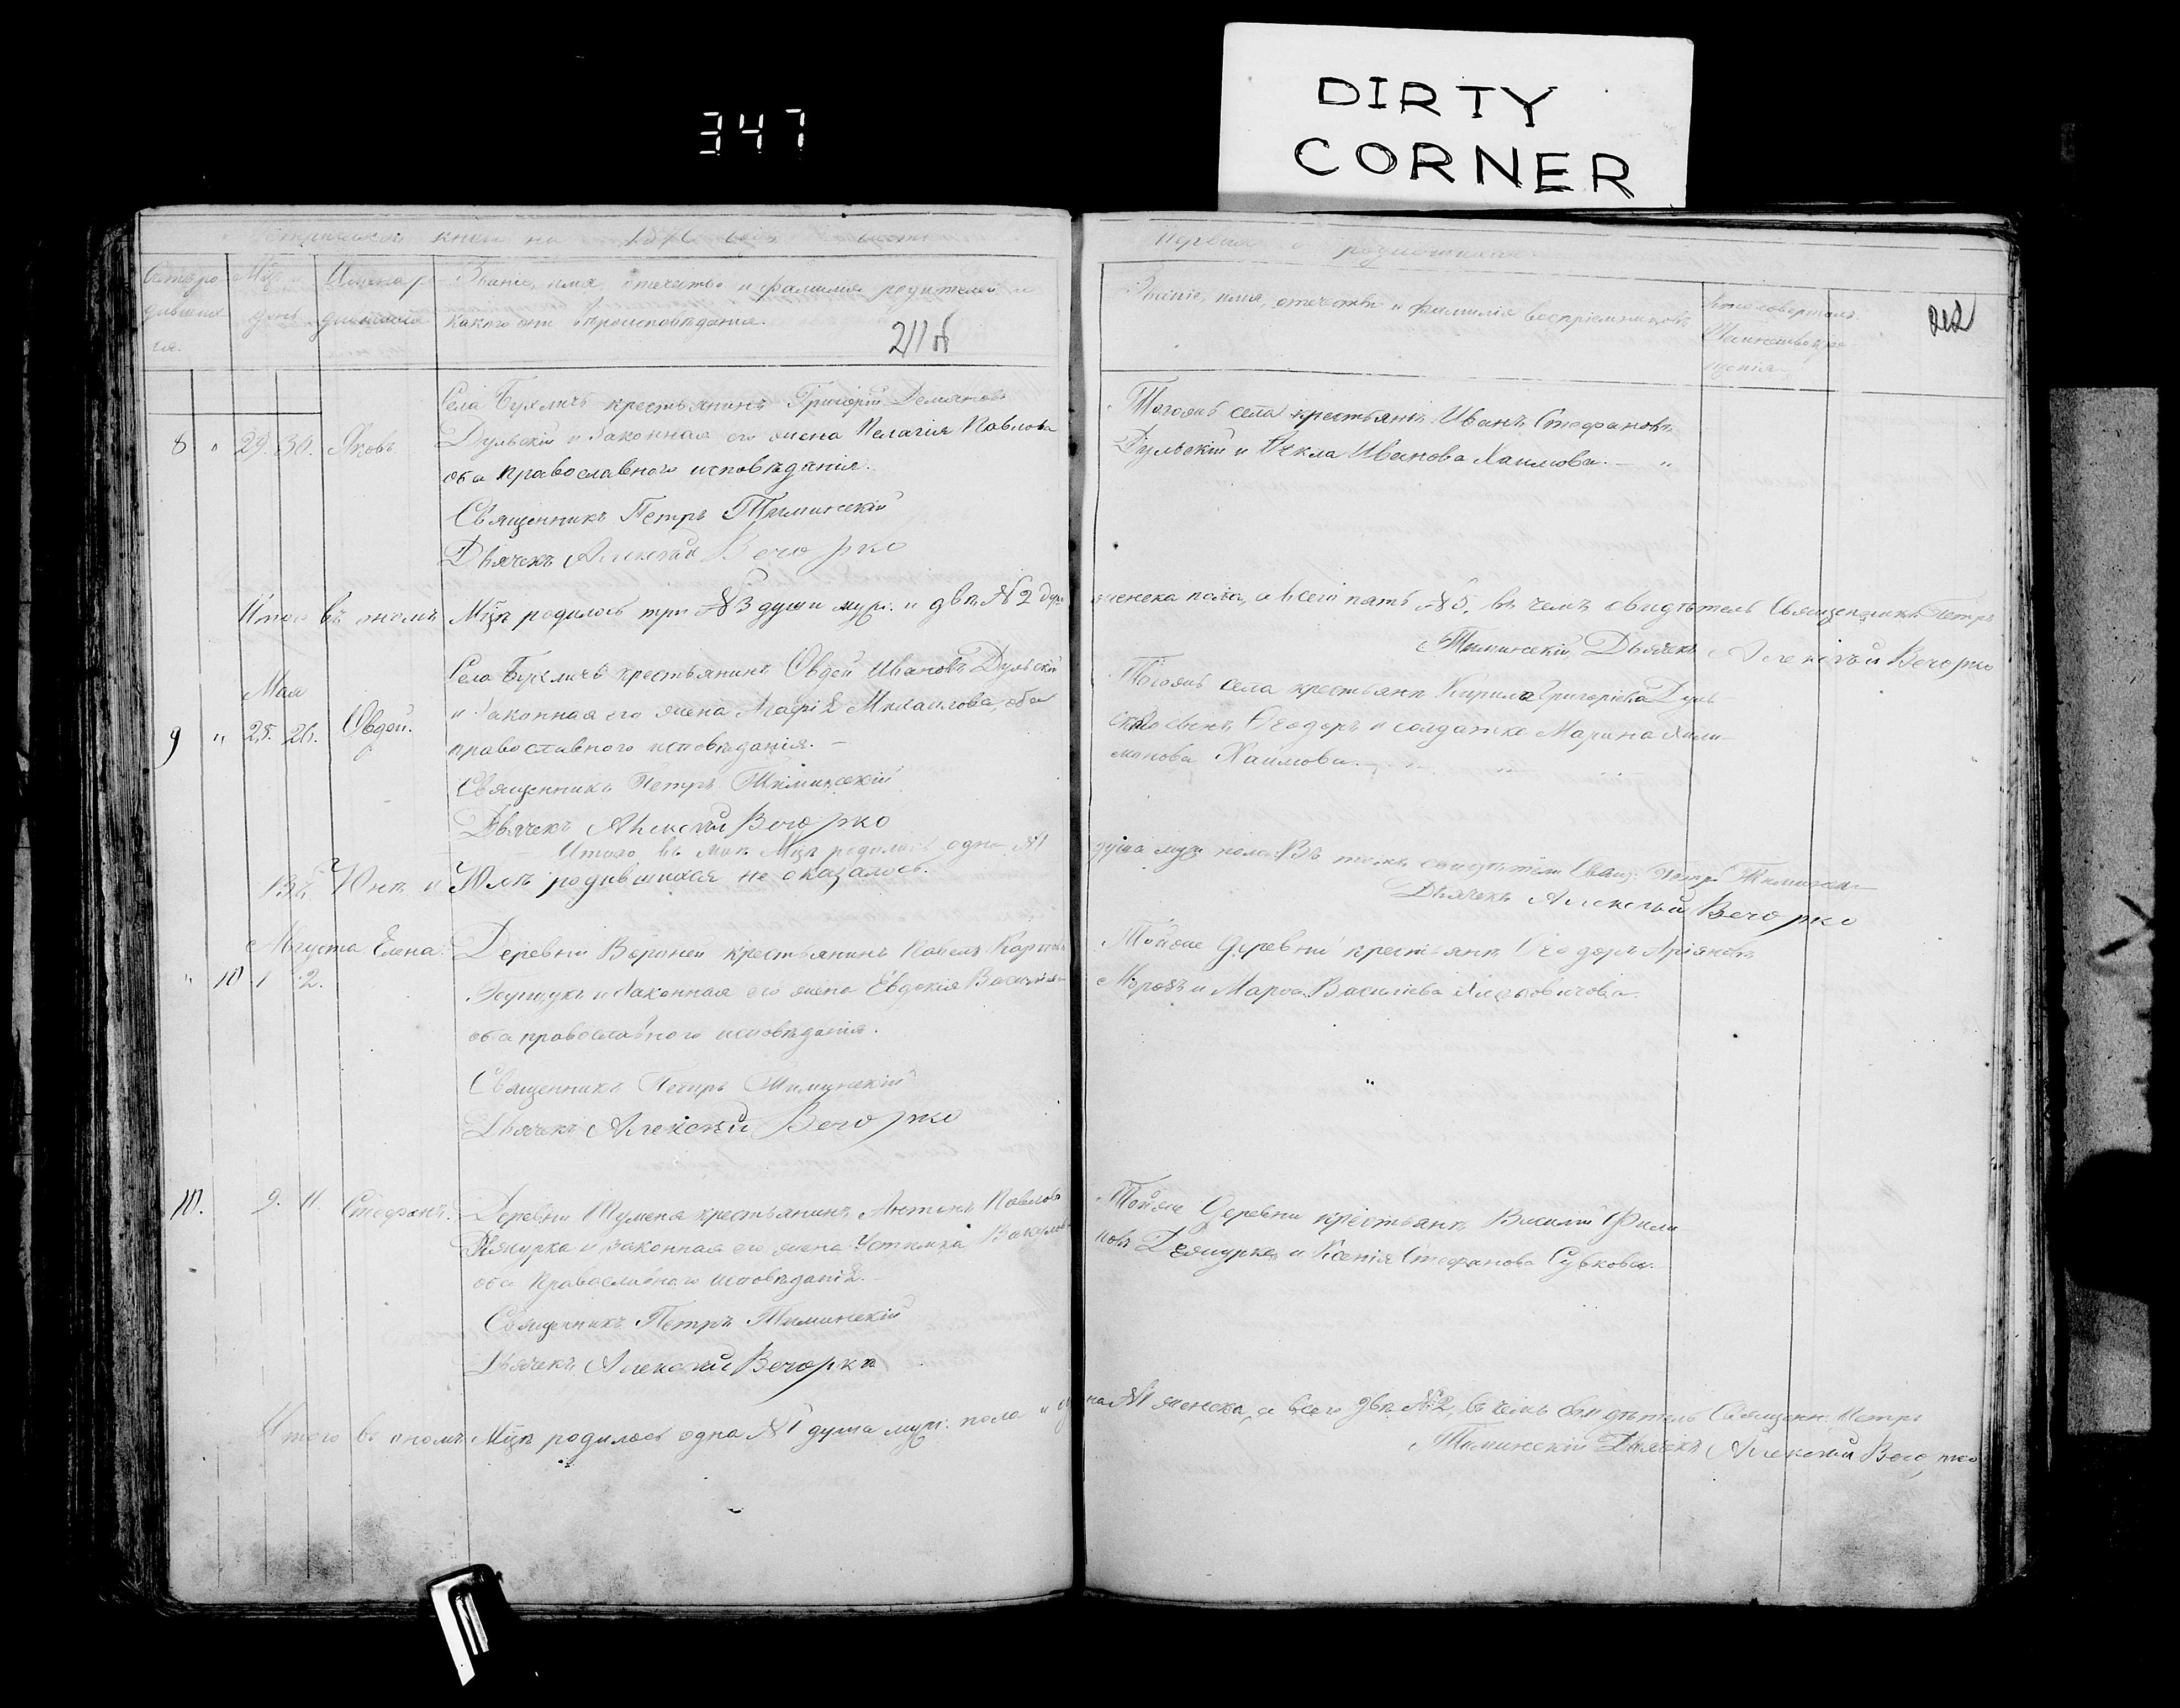 347
DIRTY
CORNER
книги на 1876 годъ части
первая о родившихся
Звание, имя, отечество и фамилия родителей и
какого они вѣроисповѣдания.
211 об
Звание, имя, отчество и фамилия восприемниковъ
Кто совершалъ
Таинство кре-
щения
212
Села Бухличъ крестьянинъ Григорій Демяновъ
8 " 29. 30. Яковъ. Дульскій и законная его жена Пелагія Павлова
оба православнаго исповѣданія.
Священникъ Петръ Тиминскій
Дьячекъ Алексѣй Вечорко
Тогожъ села крестьянъ Иванъ Стефановъ
Дульскій и Ѳекла Иванова Хаимова. — "
Итого въ ономъ Мцѣ родилось три №3 души муж. и двѣ №2 души
женска пола, а всего пять №5. въ чемъ свидѣтель Священникъ Петръ
Тиминскій, Дьячекъ Алексѣй Вечорко
Мая
9 " 25. 26. Овдей.
Села Бухличъ крестьянинъ Овдей Ивановъ Дульскій
и законная его жена Агафія Михаилова, оба
православнаго исповѣданія. —
Священникъ Петръ Тиминскій
Дьячекъ Алексѣй Вечорко
Тогожъ села крестьянъ Кирила Григоріева Дуль
скаго сынъ Ѳеодоръ и солдатка Марина Фили-
монова Хаимова.
Итого въ маѣ Мцѣ родилось одна №1
душа муж пола. Въ чемъ свидѣтель Свящ: Петръ Тиминскій
Дьячекъ Алексѣй Вечорко
Въ Юнѣ и Юлѣ родившихся не оказалось.
Августа Елена.
" 10 1 2.
Деревни Вороней крестьянинъ Павелъ Карповъ
и законная его жена Евдокія Василіева
оба православнаго исповѣданія.
Священникъ Петръ Тиминскій
Дьячекъ Алексѣй Вечорко
Тойже деревни крестьянъ Ѳеодоръ
Морозъ и Марѳа Василіева
10. 9. 11. Стефанъ.
Деревни Тумена крестьянинъ Антонъ Павловъ
и законная его жена Устимія
оба Православнаго исповѣданія. —
Священникъ Петръ Тиминскій
Дьячекъ Алексѣй Вечорко
Тойже деревни крестьянъ Василій Фили
повъ и Ксенія Стефанова Субкова. —
Итого въ ономъ Мцѣ родилось одна №1 душа муж: пола и од
на №1 женска, а всего двѣ №2, въ чемъ свидѣтель Священ. Петръ
Тиминскій Дьячекъ Алексѣй Вечорко